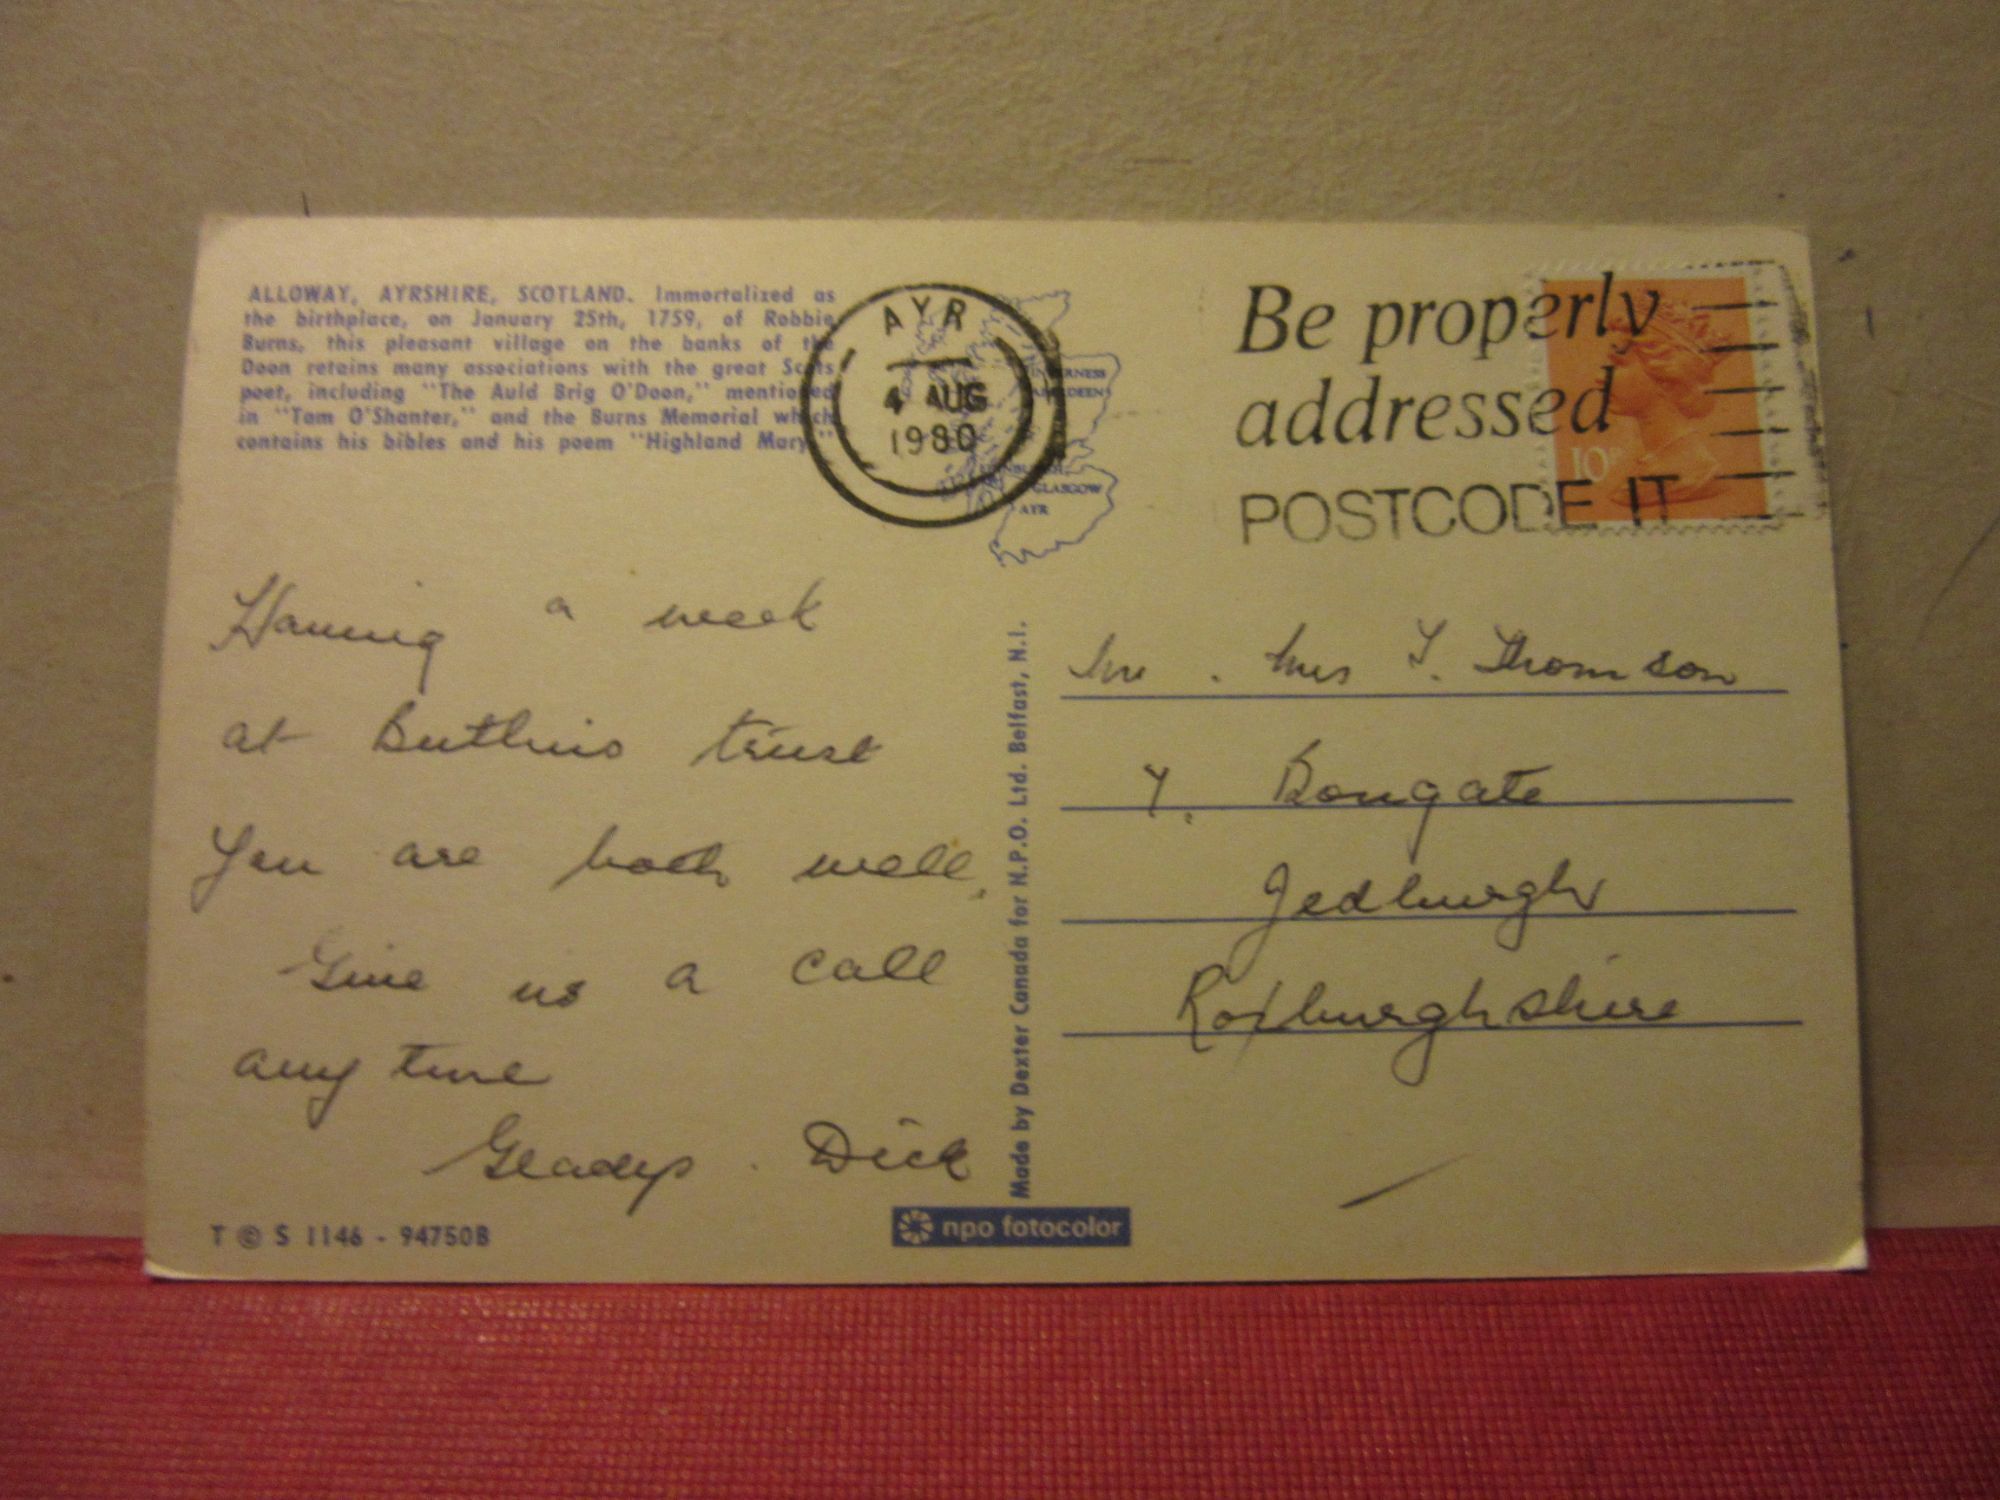 ALLOWAY, AYRSHIRE, SCOTLAND. Immortalized as
the birthplace, on January 25th, 1759, of Robbie
Burns, this pleasant village on the banks of the
Doon retains many associations with the great Scots
poet, including "The Auld Brig O'Doon," mentioned
in "Tam O'Shanter," and the Burns Memorial which
contains his bibles and his poem "Highland Mary."
AYR
4 AUG
1980
INVERNESS
ABERDEEN
EDINBURGH
GLASGOW
AYR
Be properly
addressed
POSTCODE IT
10P
Having a week
at Butlins trust
You are both well.
Give us a call
any time
Gladys . Dick
Mr . Mrs T. Thomson
7. Bongate
Jedburgh
Roxburghshire
Made by Dexter Canada for N.P.O. Ltd. Belfast, N.I.
T © S 1146 - 94750B
npo fotocolor